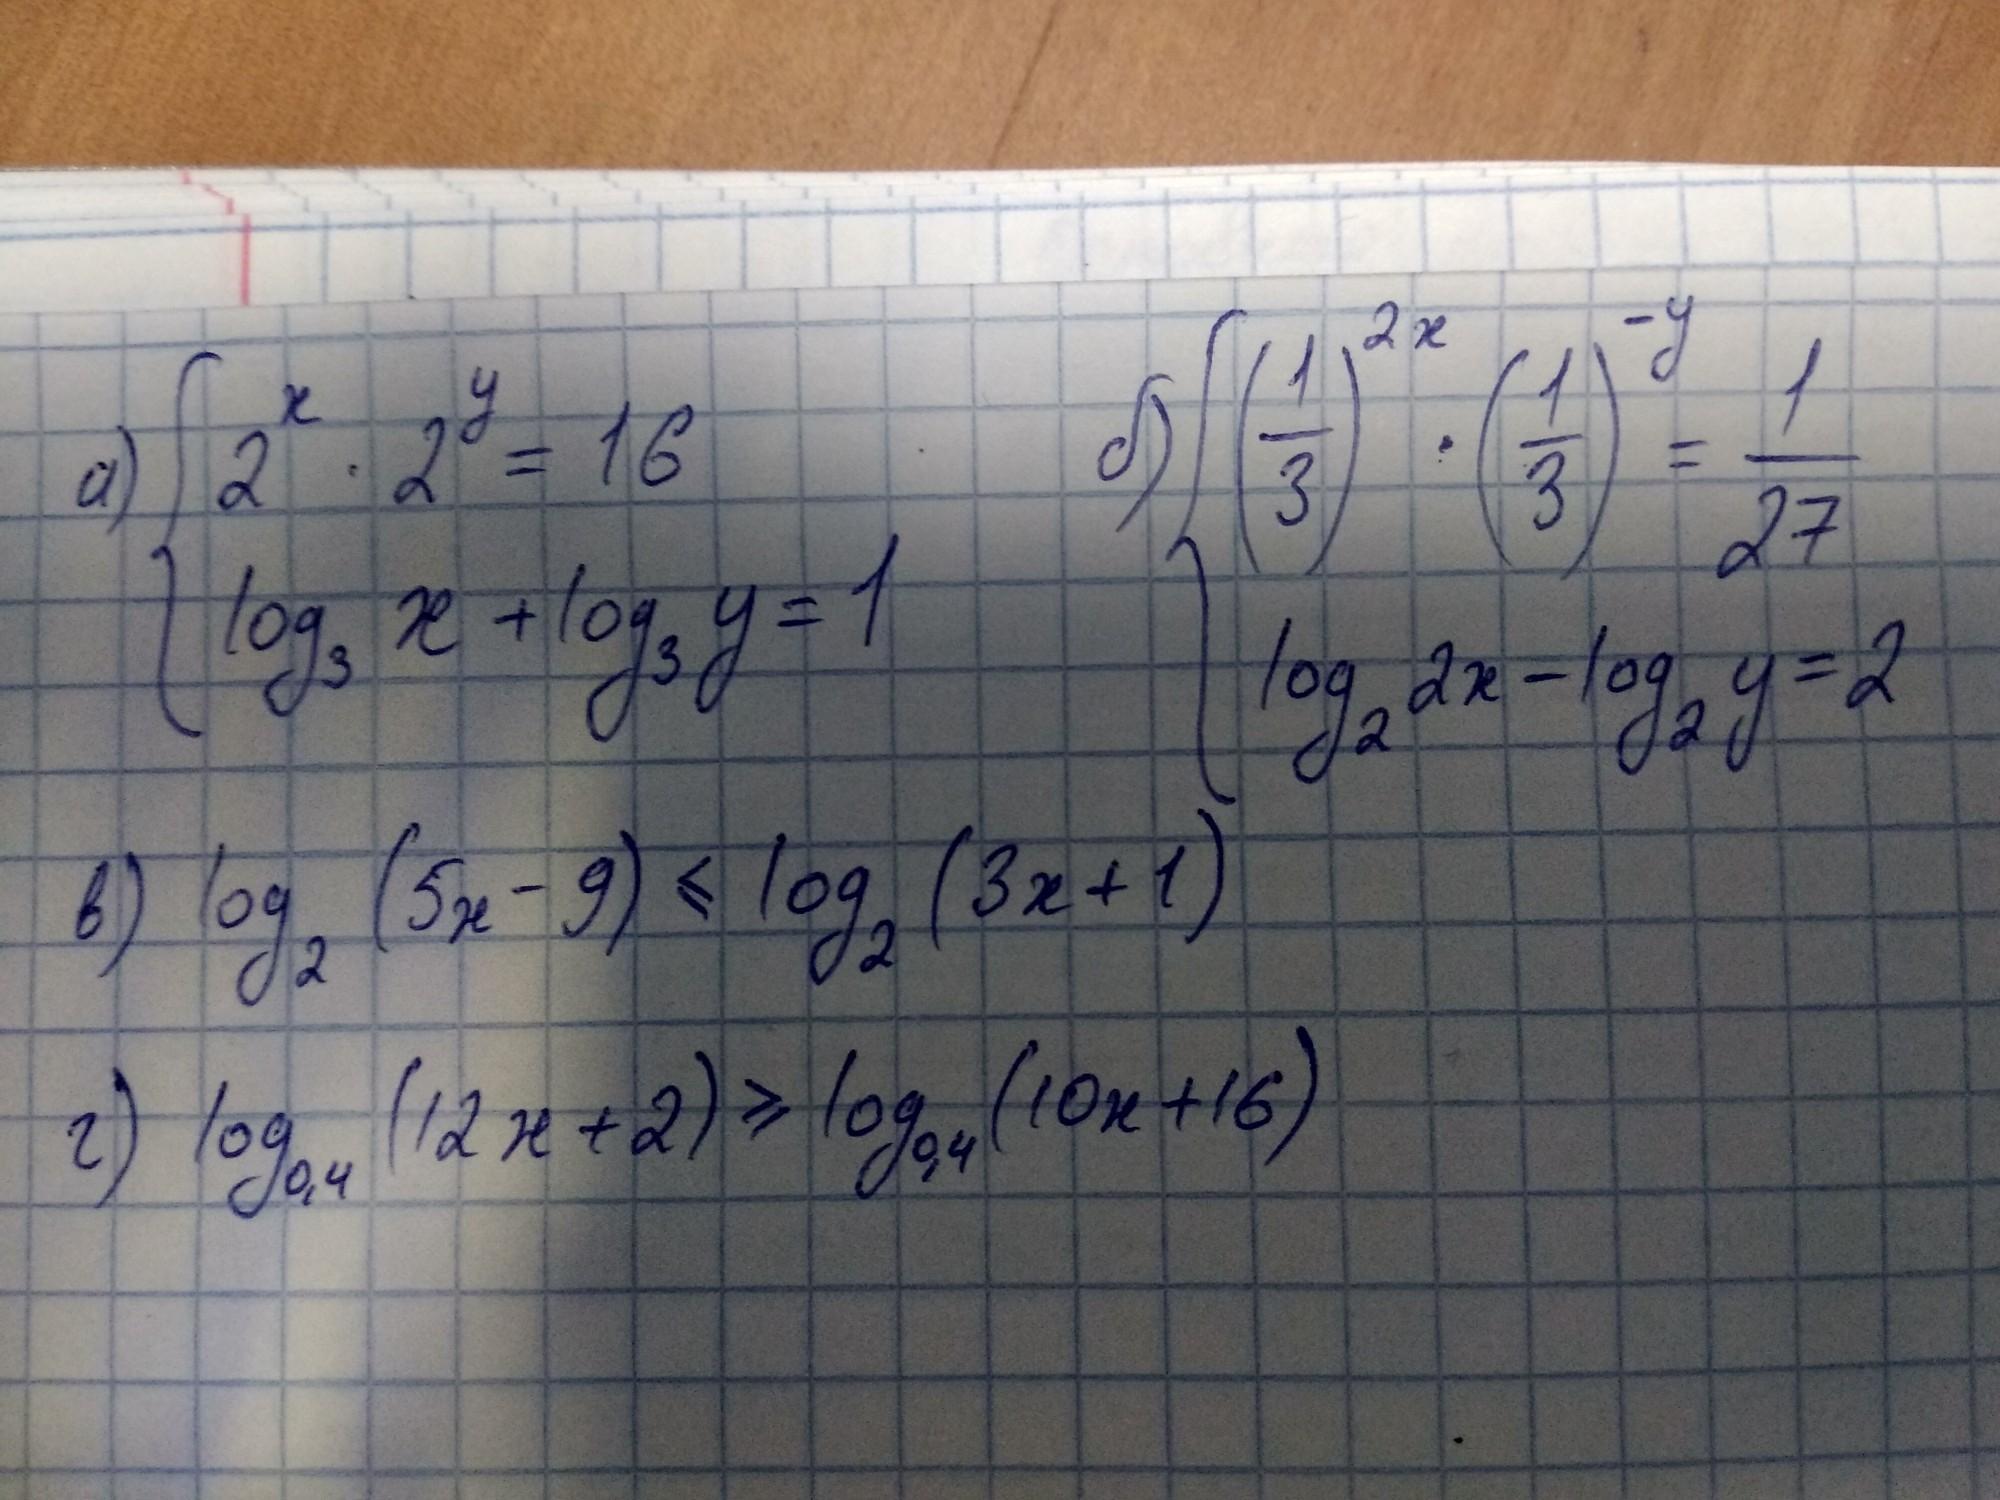 а) { 2^x · 2^y = 16
log₃ x + log₃ y = 1
б) { (1/3)^2x · (1/3)^-y = 1/27
log₂ 2x - log₂ y = 2
в) log₂ (5x - 9) ⩽ log₂ (3x + 1)
г) log₀,₄ (12x + 2) ⩾ log₀,₄ (10x + 16)